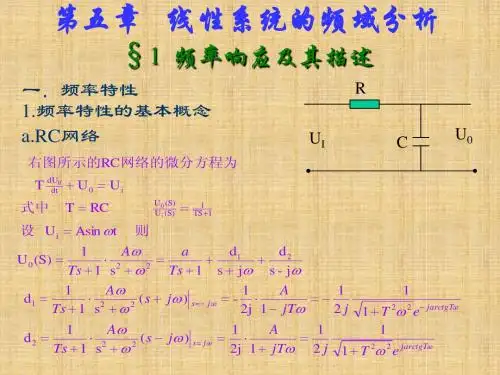 第五章 线性系统的频域分析
§1 频率响应及其描述
一．频率特性
1.频率特性的基本概念
a.RC网络
R
U_I
C
U_0
右图所示的RC网络的微分方程为
T dU_0/dt + U_0 = U_i
式中 T = RC U_0(S)/U_i(S) = 1/(TS+1)
设 U_i = Asin ωt 则
U_0(S) = 1/(Ts + 1) · Aω/(s^2 + ω^2) = a/(Ts + 1) + d_1/(s + jω) + d_2/(s - jω)
d_1 = 1/(Ts + 1) · Aω/(s^2 + ω^2) (s + jω)|_{s=-jω} = - 1/2j · A/(1 - jTω) = - 1/2j · 1/(√(1 + T^2ω^2) e^{-jarctgTω})
d_2 = 1/(Ts + 1) · Aω/(s^2 + ω^2) (s - jω)|_{s=jω} = 1/2j · A/(1 + jTω) = 1/2j · 1/(√(1 + T^2ω^2) e^{jarctgTω})